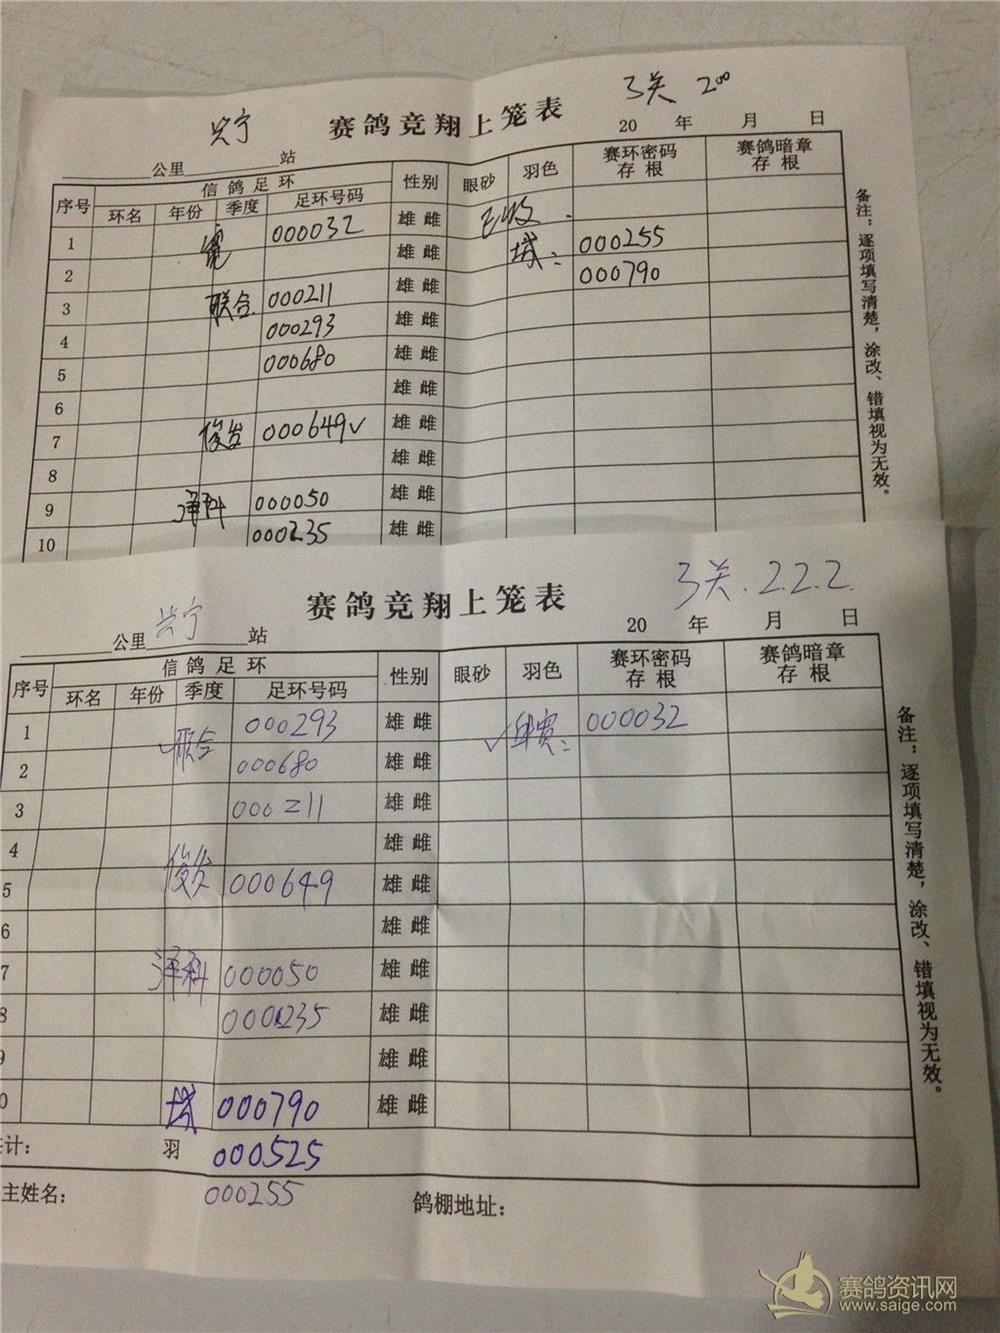 3关 200
兴宁 赛鸽竞翔上笼表
公里 站 20 年 月 日
序号 信鸽足环 性别 眼砂 羽色 赛环密码存根 赛鸽暗章存根
环名 年份 季度 足环号码
1 000032 雄 雌
2 雄 雌 城: 000255
000790
3 联合 000211 雄 雌
4 000293 雄 雌
5 000680 雄 雌
6 雄 雌
7 俊发 000649√ 雄 雌
8 雄 雌
9 泽科 000050 雄 雌
10 000235 雄 雌
备注：逐项填写清楚，涂改、错填视为无效。
3关.2.2.2.
兴宁 赛鸽竞翔上笼表
公里 站 20 年 月 日
序号 信鸽足环 性别 眼砂 羽色 赛环密码存根 赛鸽暗章存根
环名 年份 季度 足环号码
1 联合 000293 雄 雌 000032
2 000680 雄 雌
3 000211 雄 雌
4 雄 雌
5 俊发 000649 雄 雌
6 雄 雌
7 泽科 000050 雄 雌
8 000235 雄 雌
9 雄 雌
0 城 000790 雄 雌
计: 羽 000525
主姓名: 000255 鸽棚地址:
备注：逐项填写清楚，涂改、错填视为无效。
赛鸽资讯网
www.saige.com